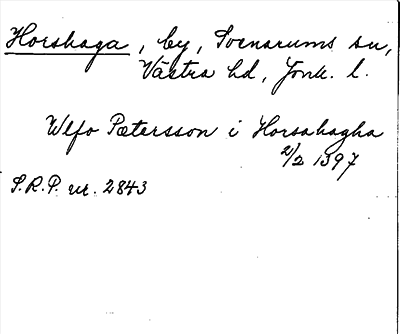 Horshaga, by, Svenarums sn,
Västra hd, Jönk. l.
Ulfo Pætersson i Horsahagha
2/2 1397
S.R.P. nr. 2843